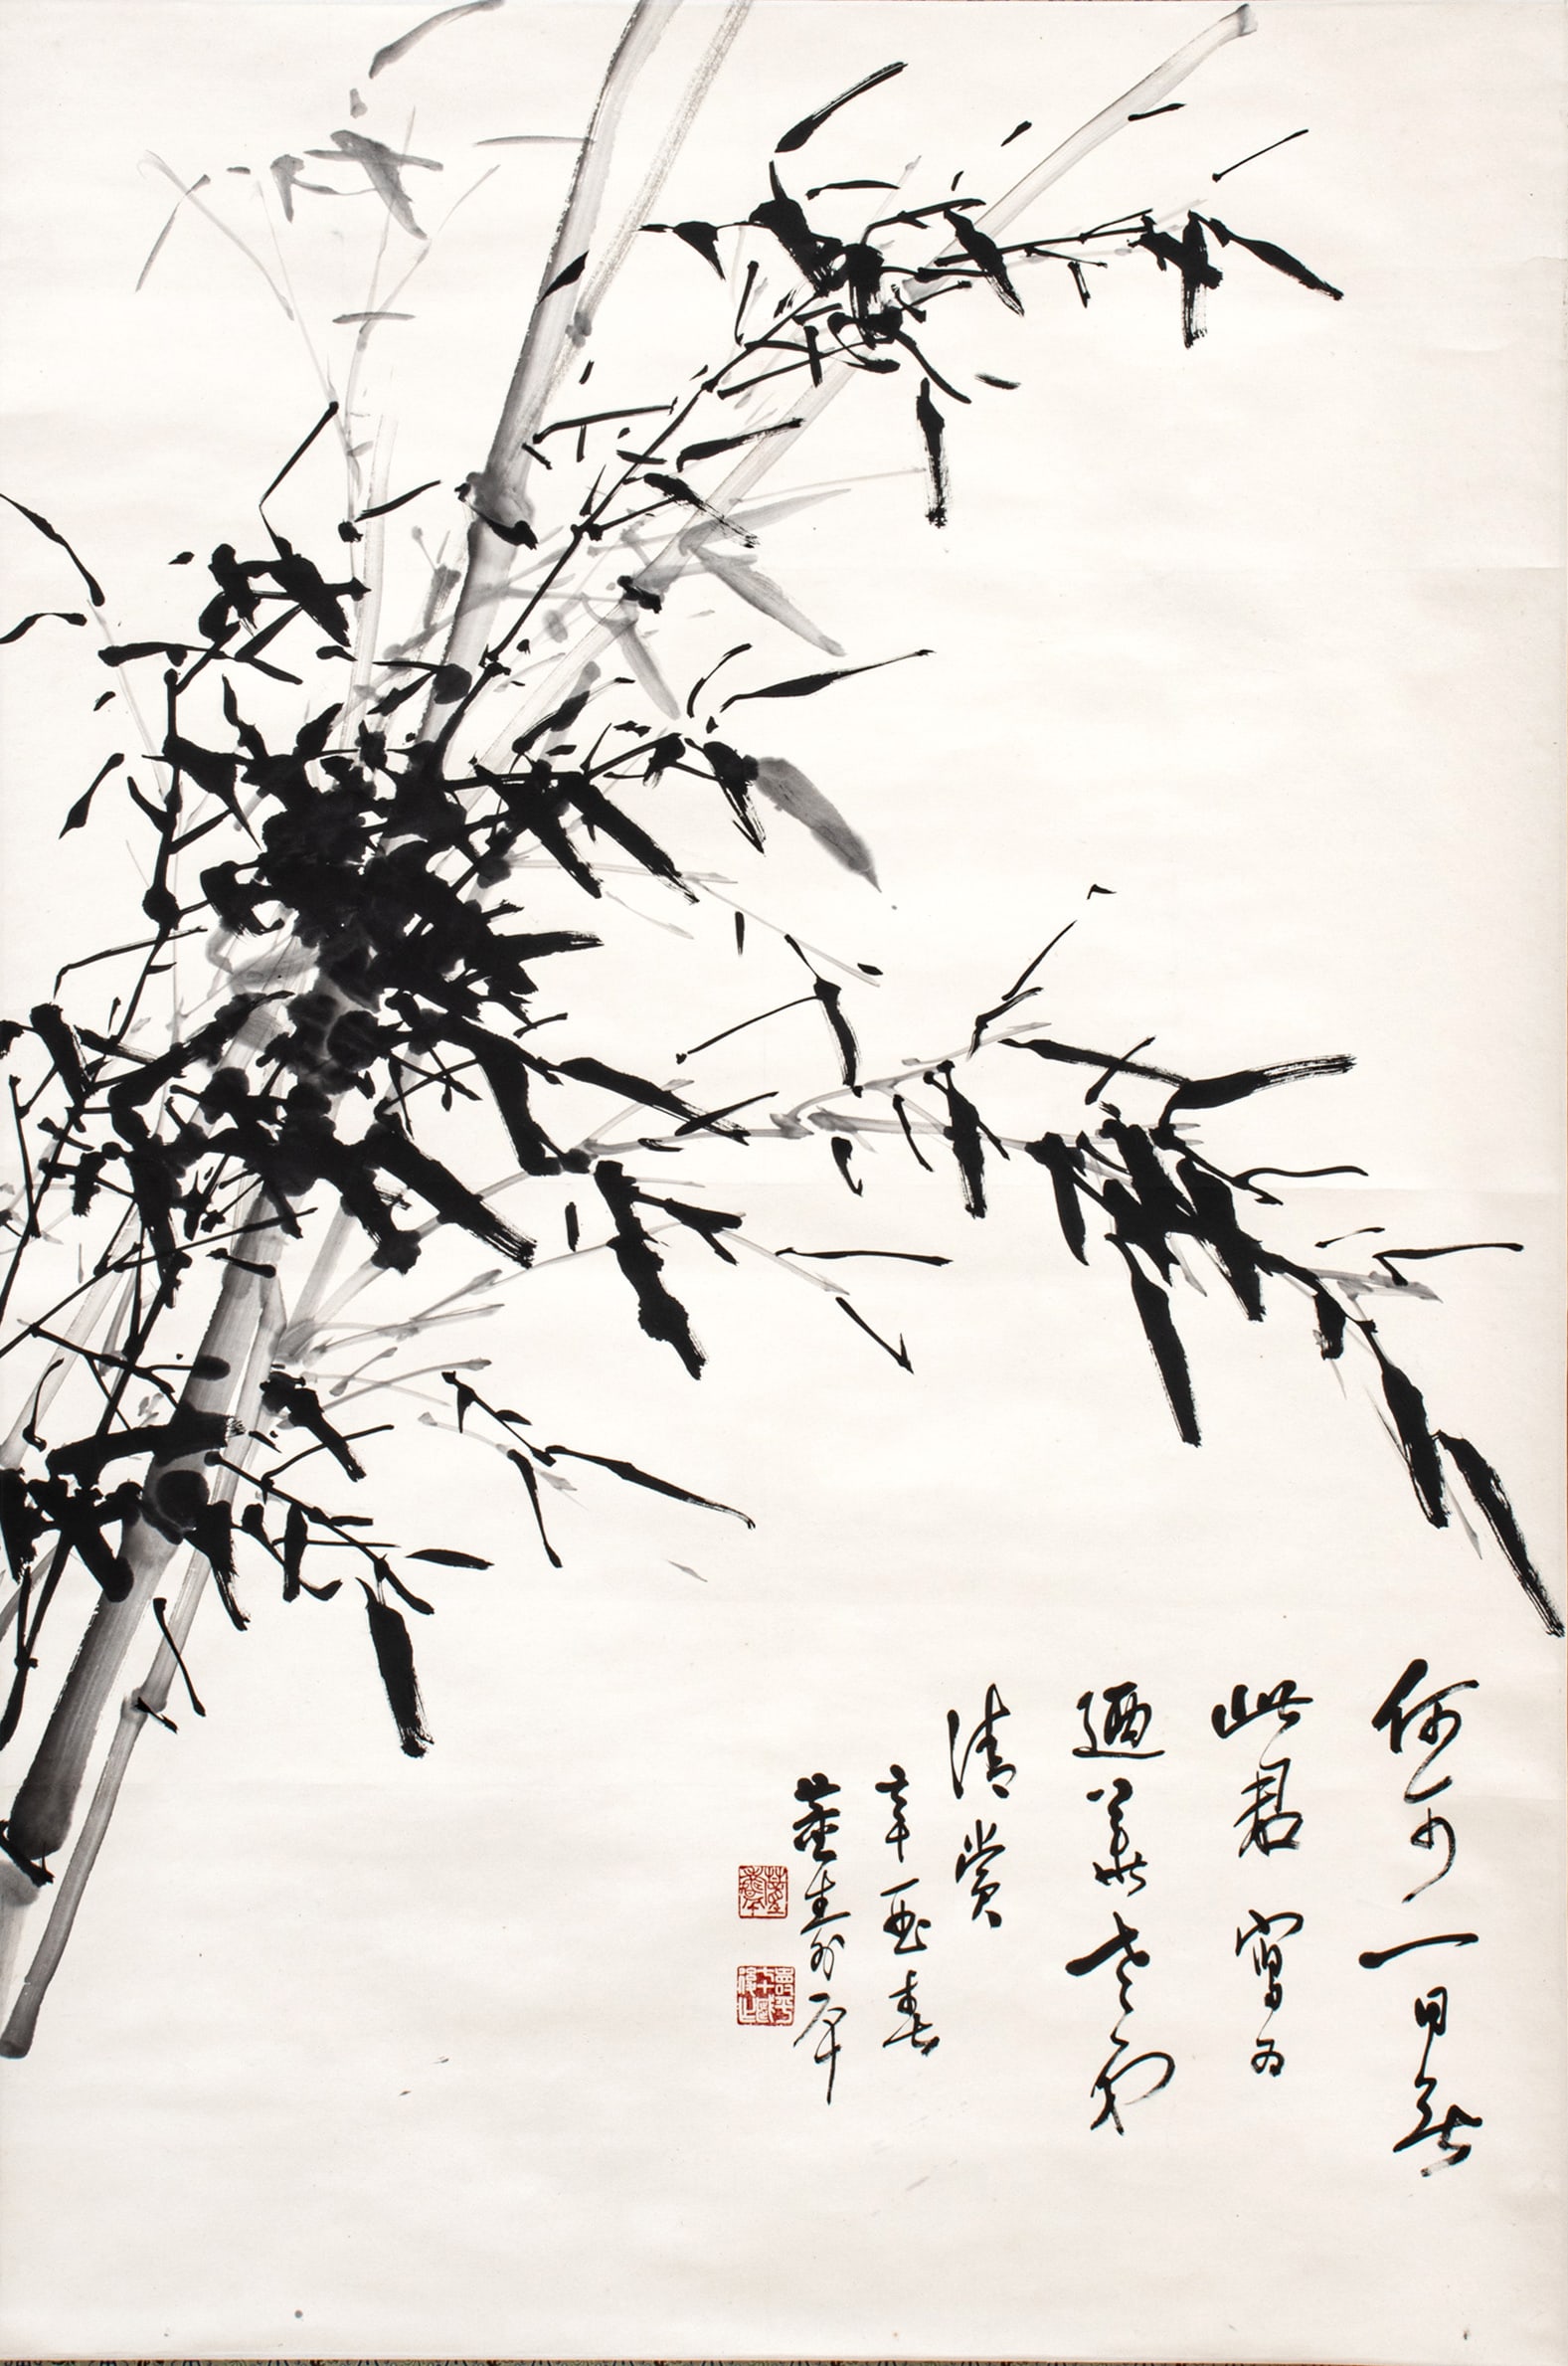 何可一日無
此君寫為
廼老弟
清賞
辛酉春
董壽平
董壽平